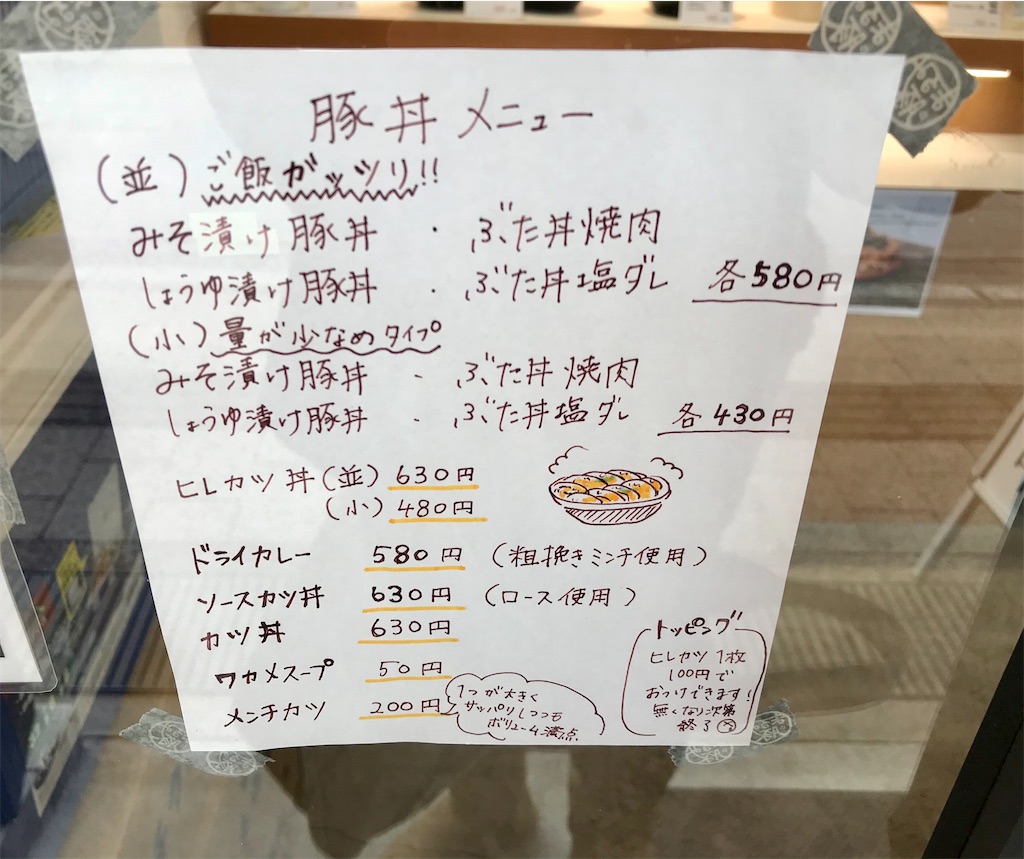 豚丼 メニュー
(並) ご飯ガッツリ!!
みそ漬け豚丼 ・ ぶた丼焼肉
しょうゆ漬け豚丼 ・ ぶた丼塩ダレ 各580円
(小) 量が少なめタイプ
みそ漬け豚丼 ・ ぶた丼焼肉
しょうゆ漬け豚丼 ・ ぶた丼塩ダレ 各430円
ヒレカツ丼(並) 630円
(小) 480円
ドライカレー 580円 (粗挽きミンチ使用)
ソースカツ丼 630円 (ロース使用)
カツ丼 630円
ワカメスープ 50円
メンチカツ 200円
1つが大きく
サッパリしつつも
ボリューム満点
トッピング
ヒレカツ1枚
100円で
おつけできます!
無くなり次第
終了